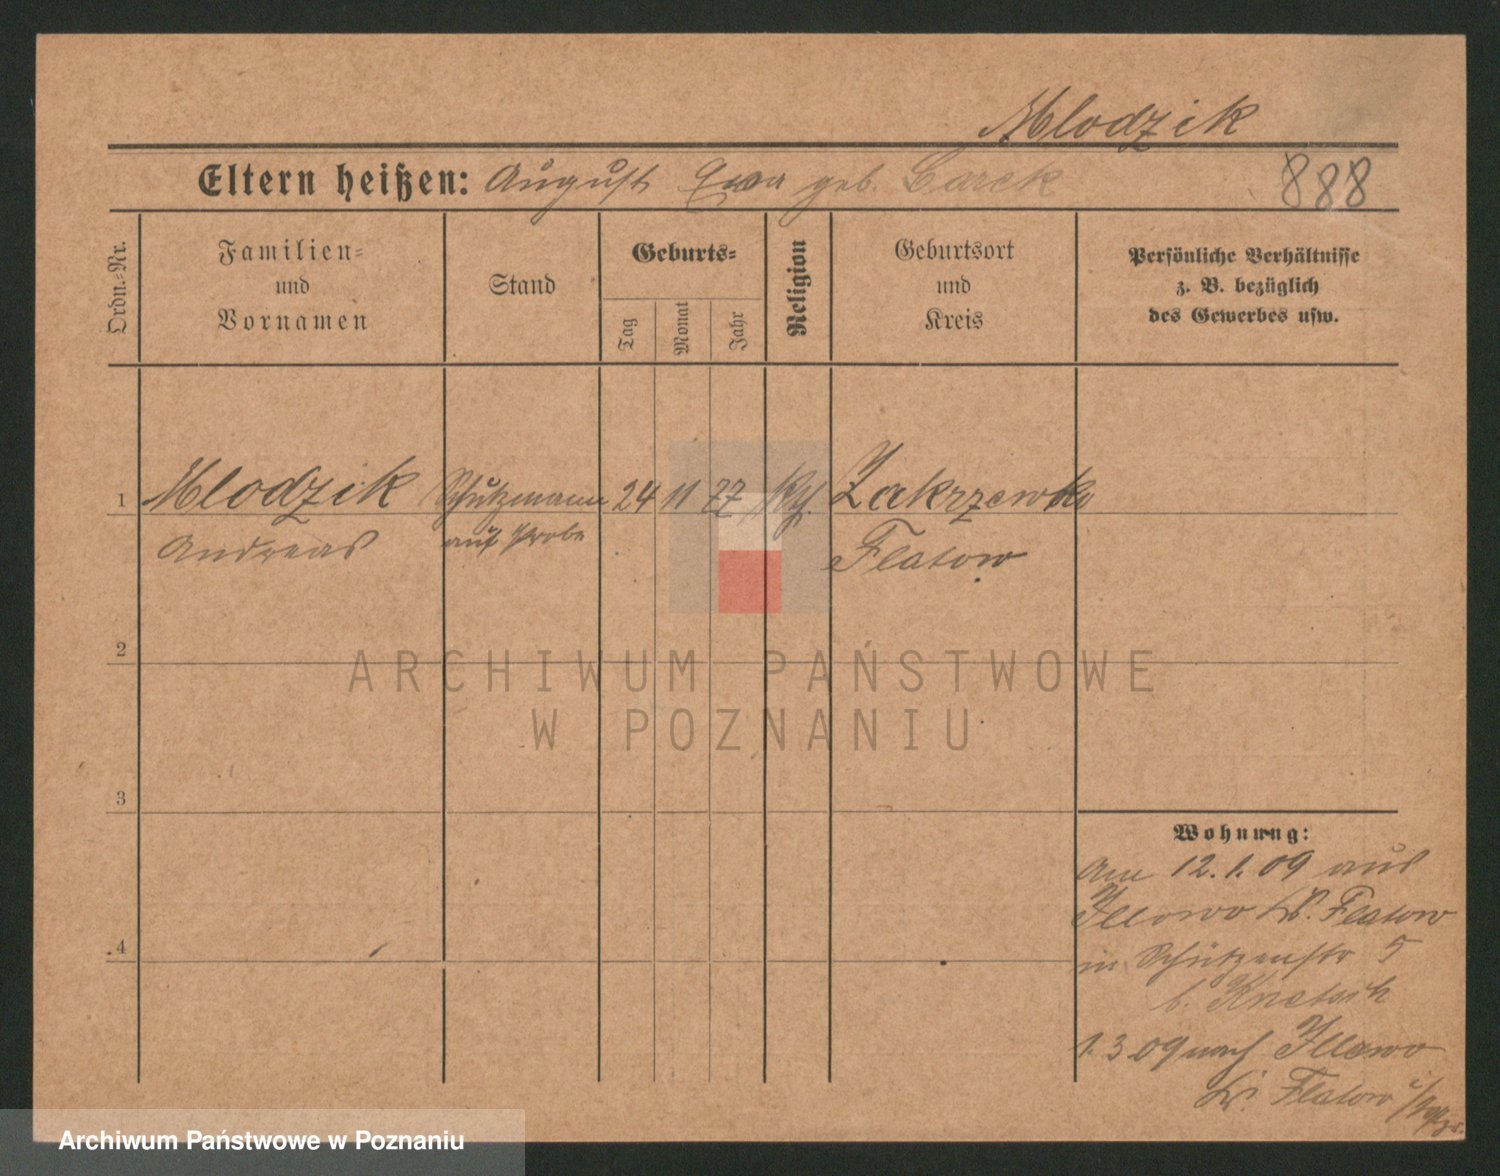 Mlodzik
Eltern heißen: August Ewa geb.
888
Ordn.-Nr.
Familien-
und
Vornamen
Stand
Geburts-
Tag
Monat
Jahr
Religion
Geburtsort
und
Kreis
Persönliche Verhältnisse
z. B. bezüglich
des Gewerbes usw.
1
Mlodzik
Andreas
Schutzmann
auf Probe
24
11
77
Zakrzewko
Flatow
2
3
4
Wohnung:
Am 12.1.09 aus
Illowo Kr. Flatow
in Schützenstr 5
b.
1.3 09 nach Illowo
Kr. Flatow
ARCHIWUM PAŃSTWOWE
W POZNANIU
Archiwum Państwowe w Poznaniu